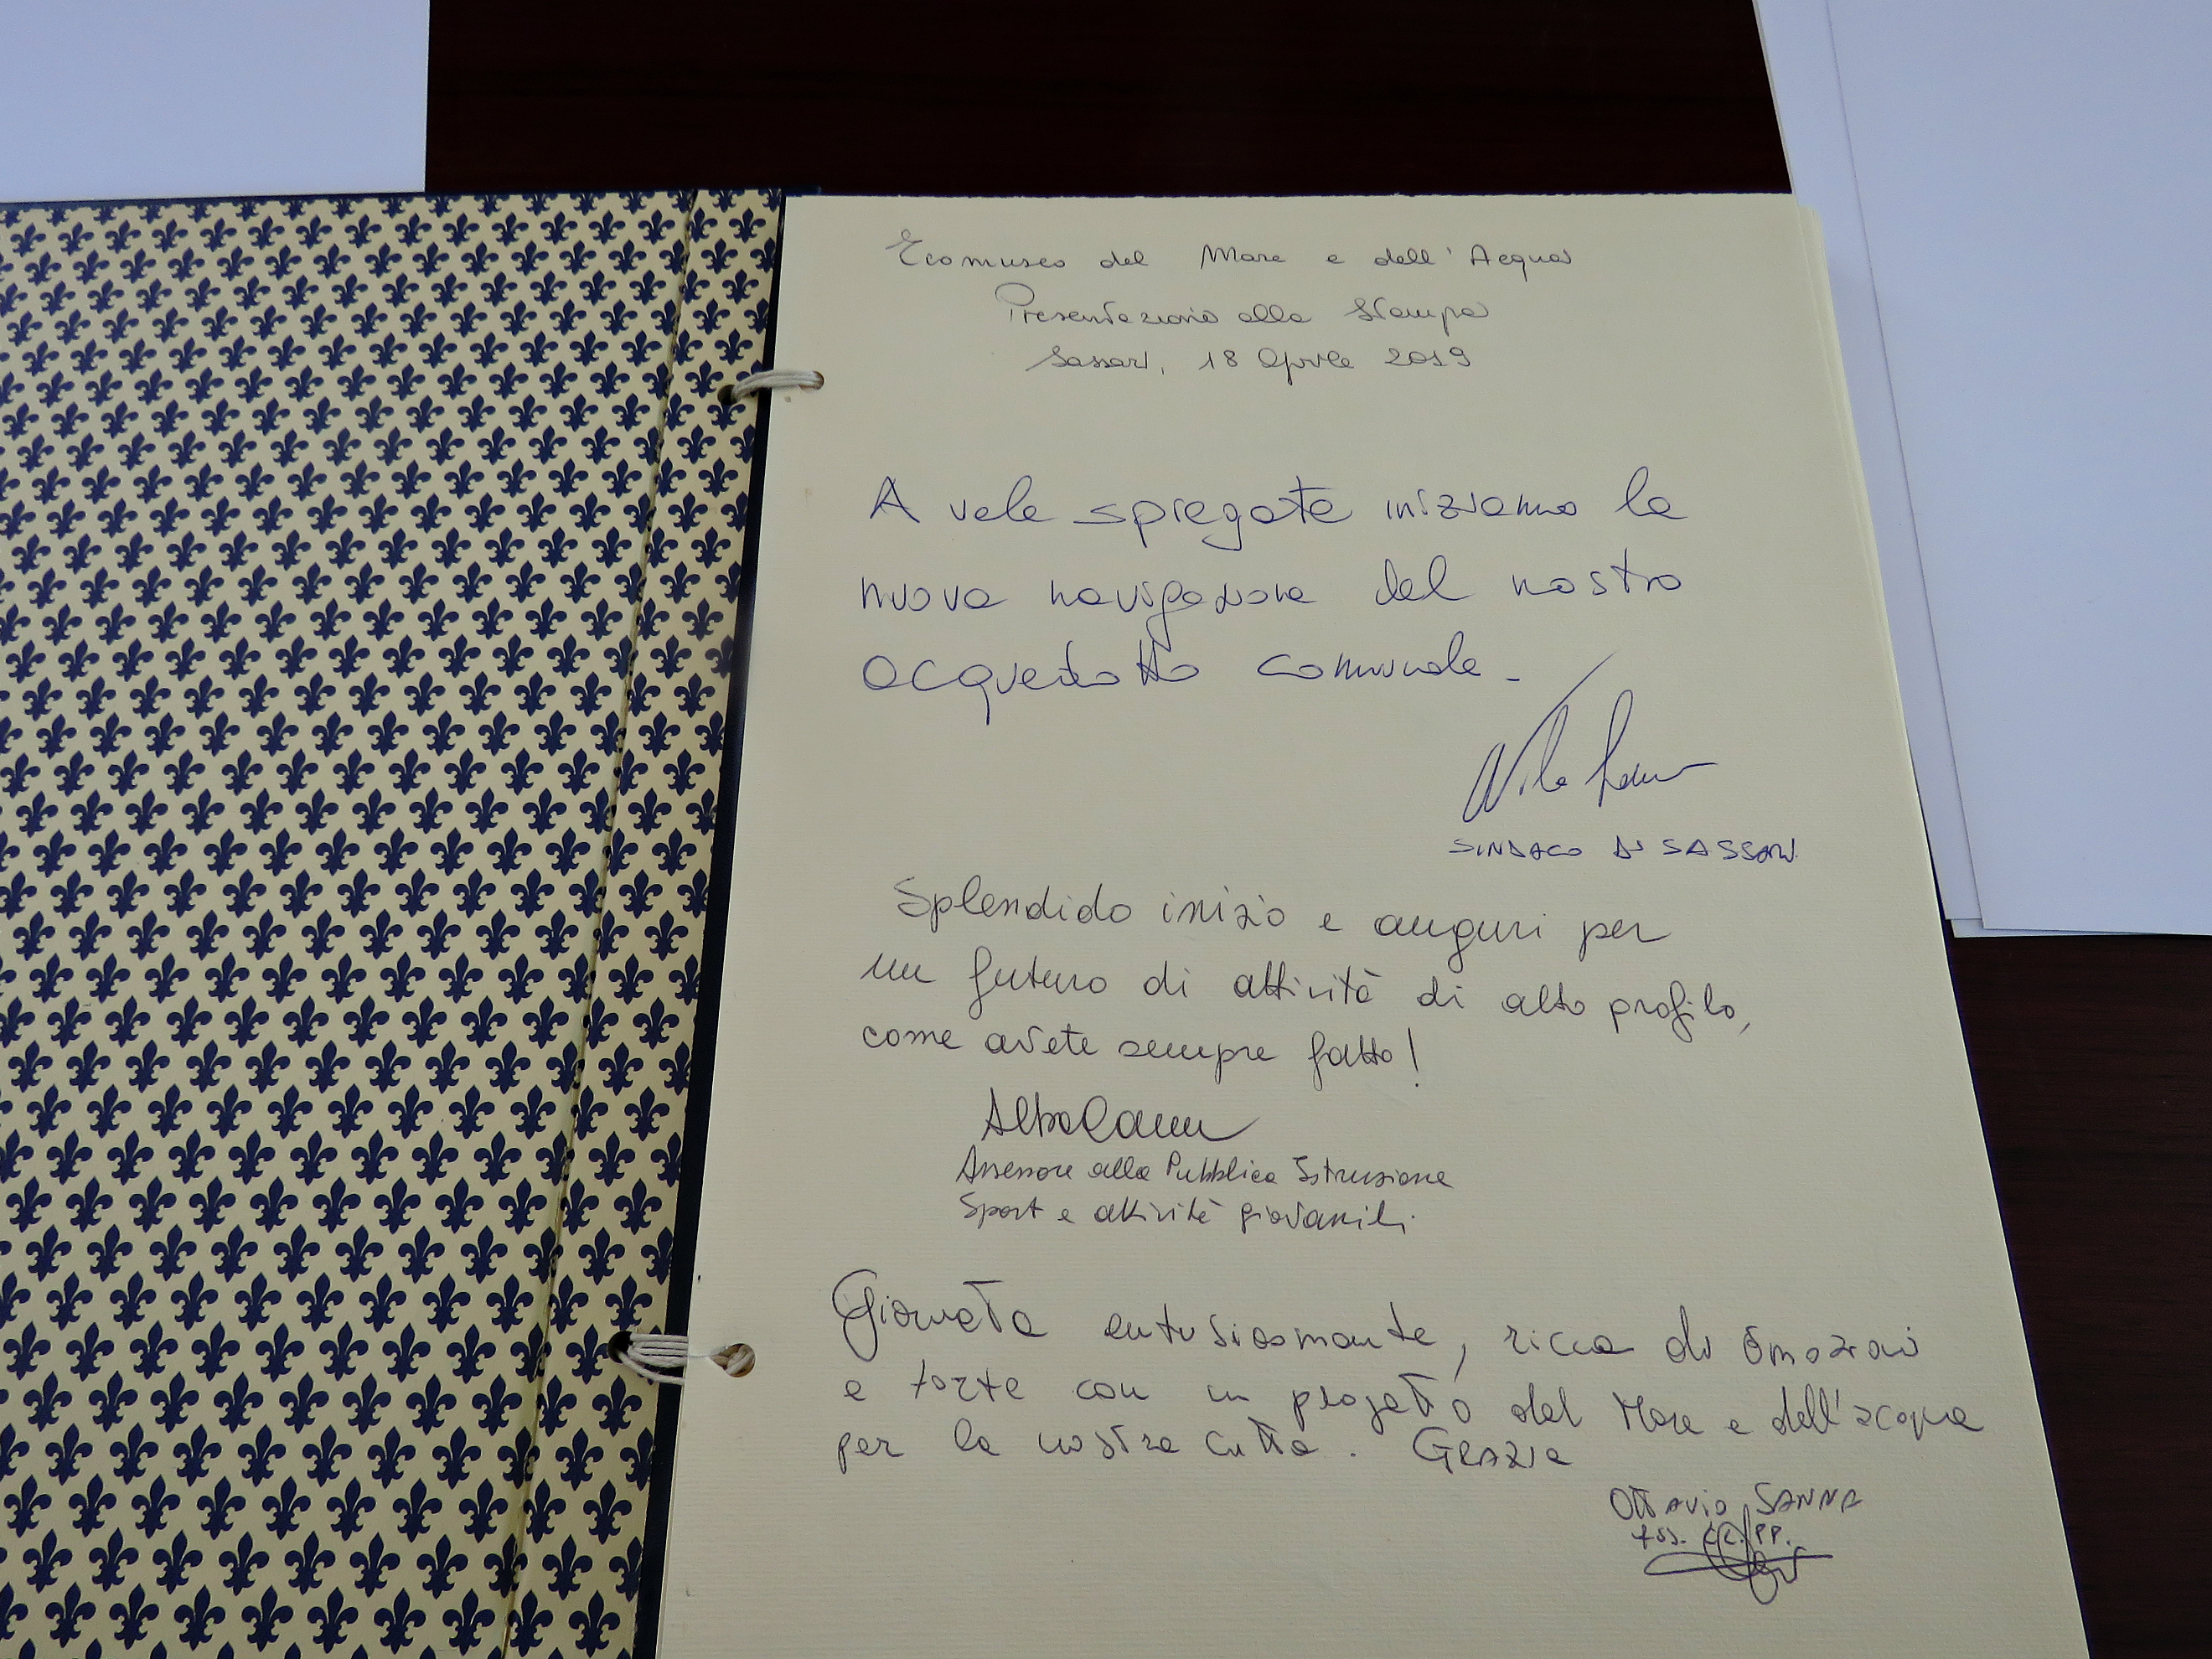 Ecomuseo del Mare e dell'Acqua
Presentazione alla Stampa
Sassari, 18 Aprile 2019
A vele spiegate iniziamo la
nuova navigazione del nostro
acquedotto comunale.
Nicola Sanna
SINDACO DI SASSARI
Splendido inizio e auguri per
un futuro di attività di alto profilo,
come avete sempre fatto!
Alba Canu
Assessore alla Pubblica Istruzione
Sport e attività giovanili.
Giornata entusiasmante, ricca di emozioni
e forte con un progetto del Mare e dell'acqua
per la nostra città. GRAZIE
OTTAVIO SANNA
Ass. LL.PP.